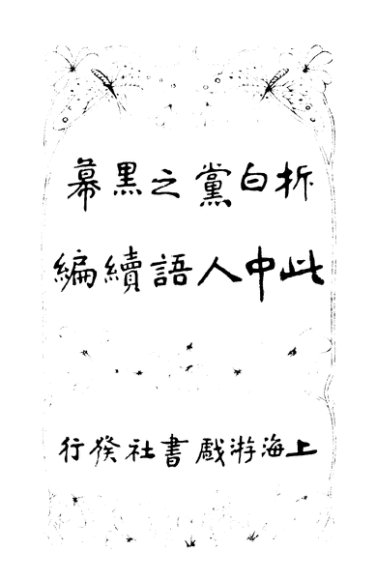 拆白黨之黑幕
此中人語續編
上海游戲書社發行